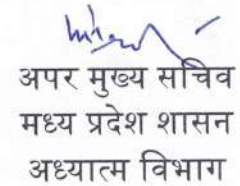 अपर मुख्य सचिव
मध्य प्रदेश शासन
अध्यात्म विभाग